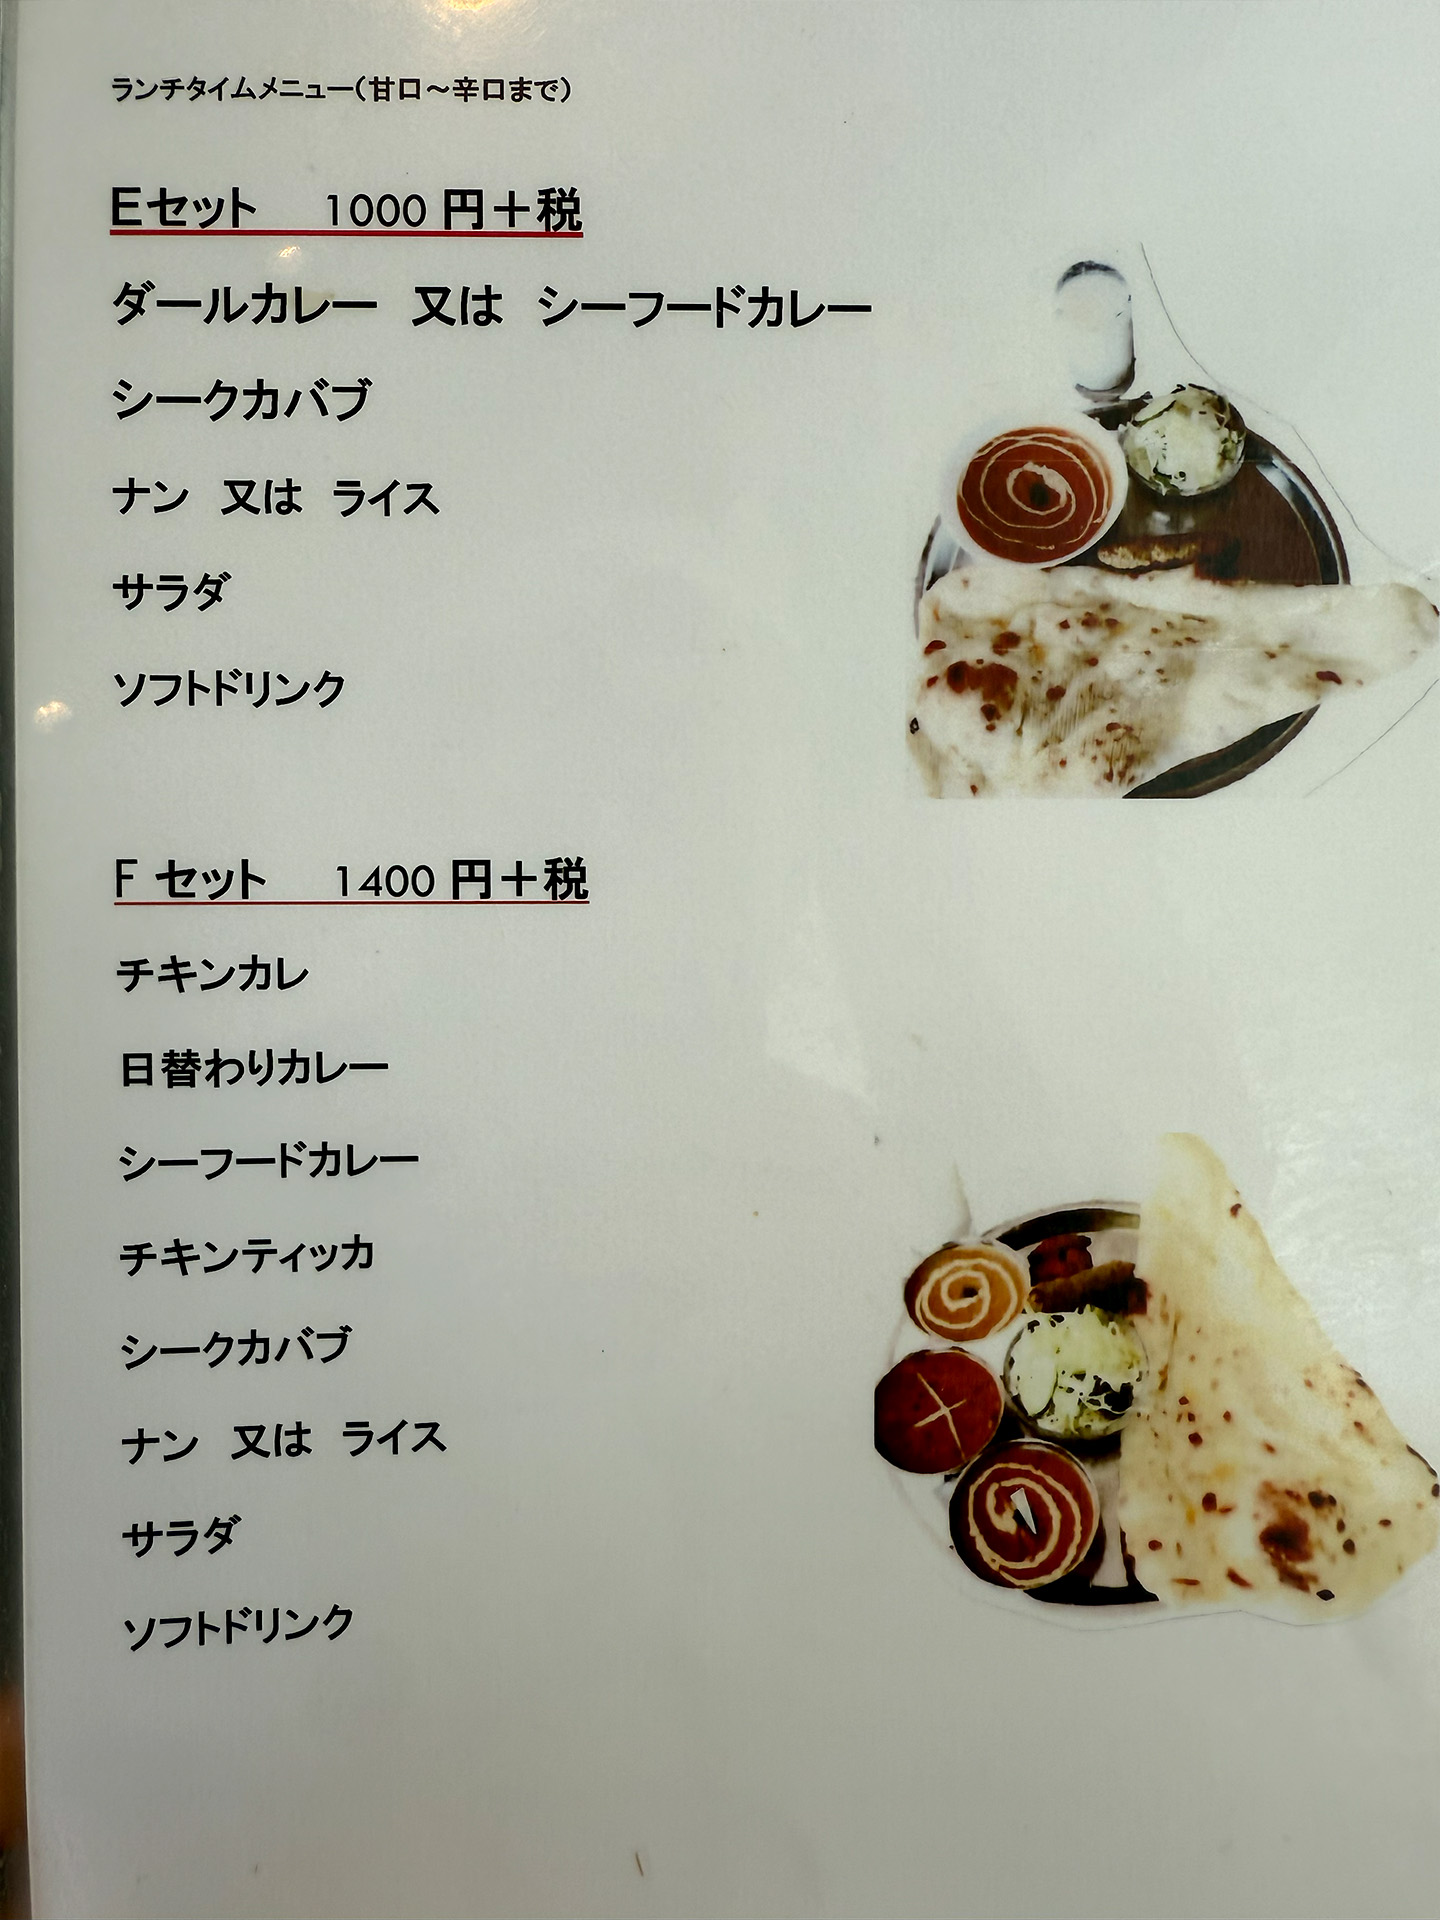 ランチタイムメニュー（甘口～辛口まで）
Eセット 1000 円＋税
ダールカレー 又は シーフードカレー
シークカバブ
ナン 又は ライス
サラダ
ソフトドリンク
F セット 1400 円＋税
チキンカレ
日替わりカレー
シーフードカレー
チキンティッカ
シークカバブ
ナン 又は ライス
サラダ
ソフトドリンク